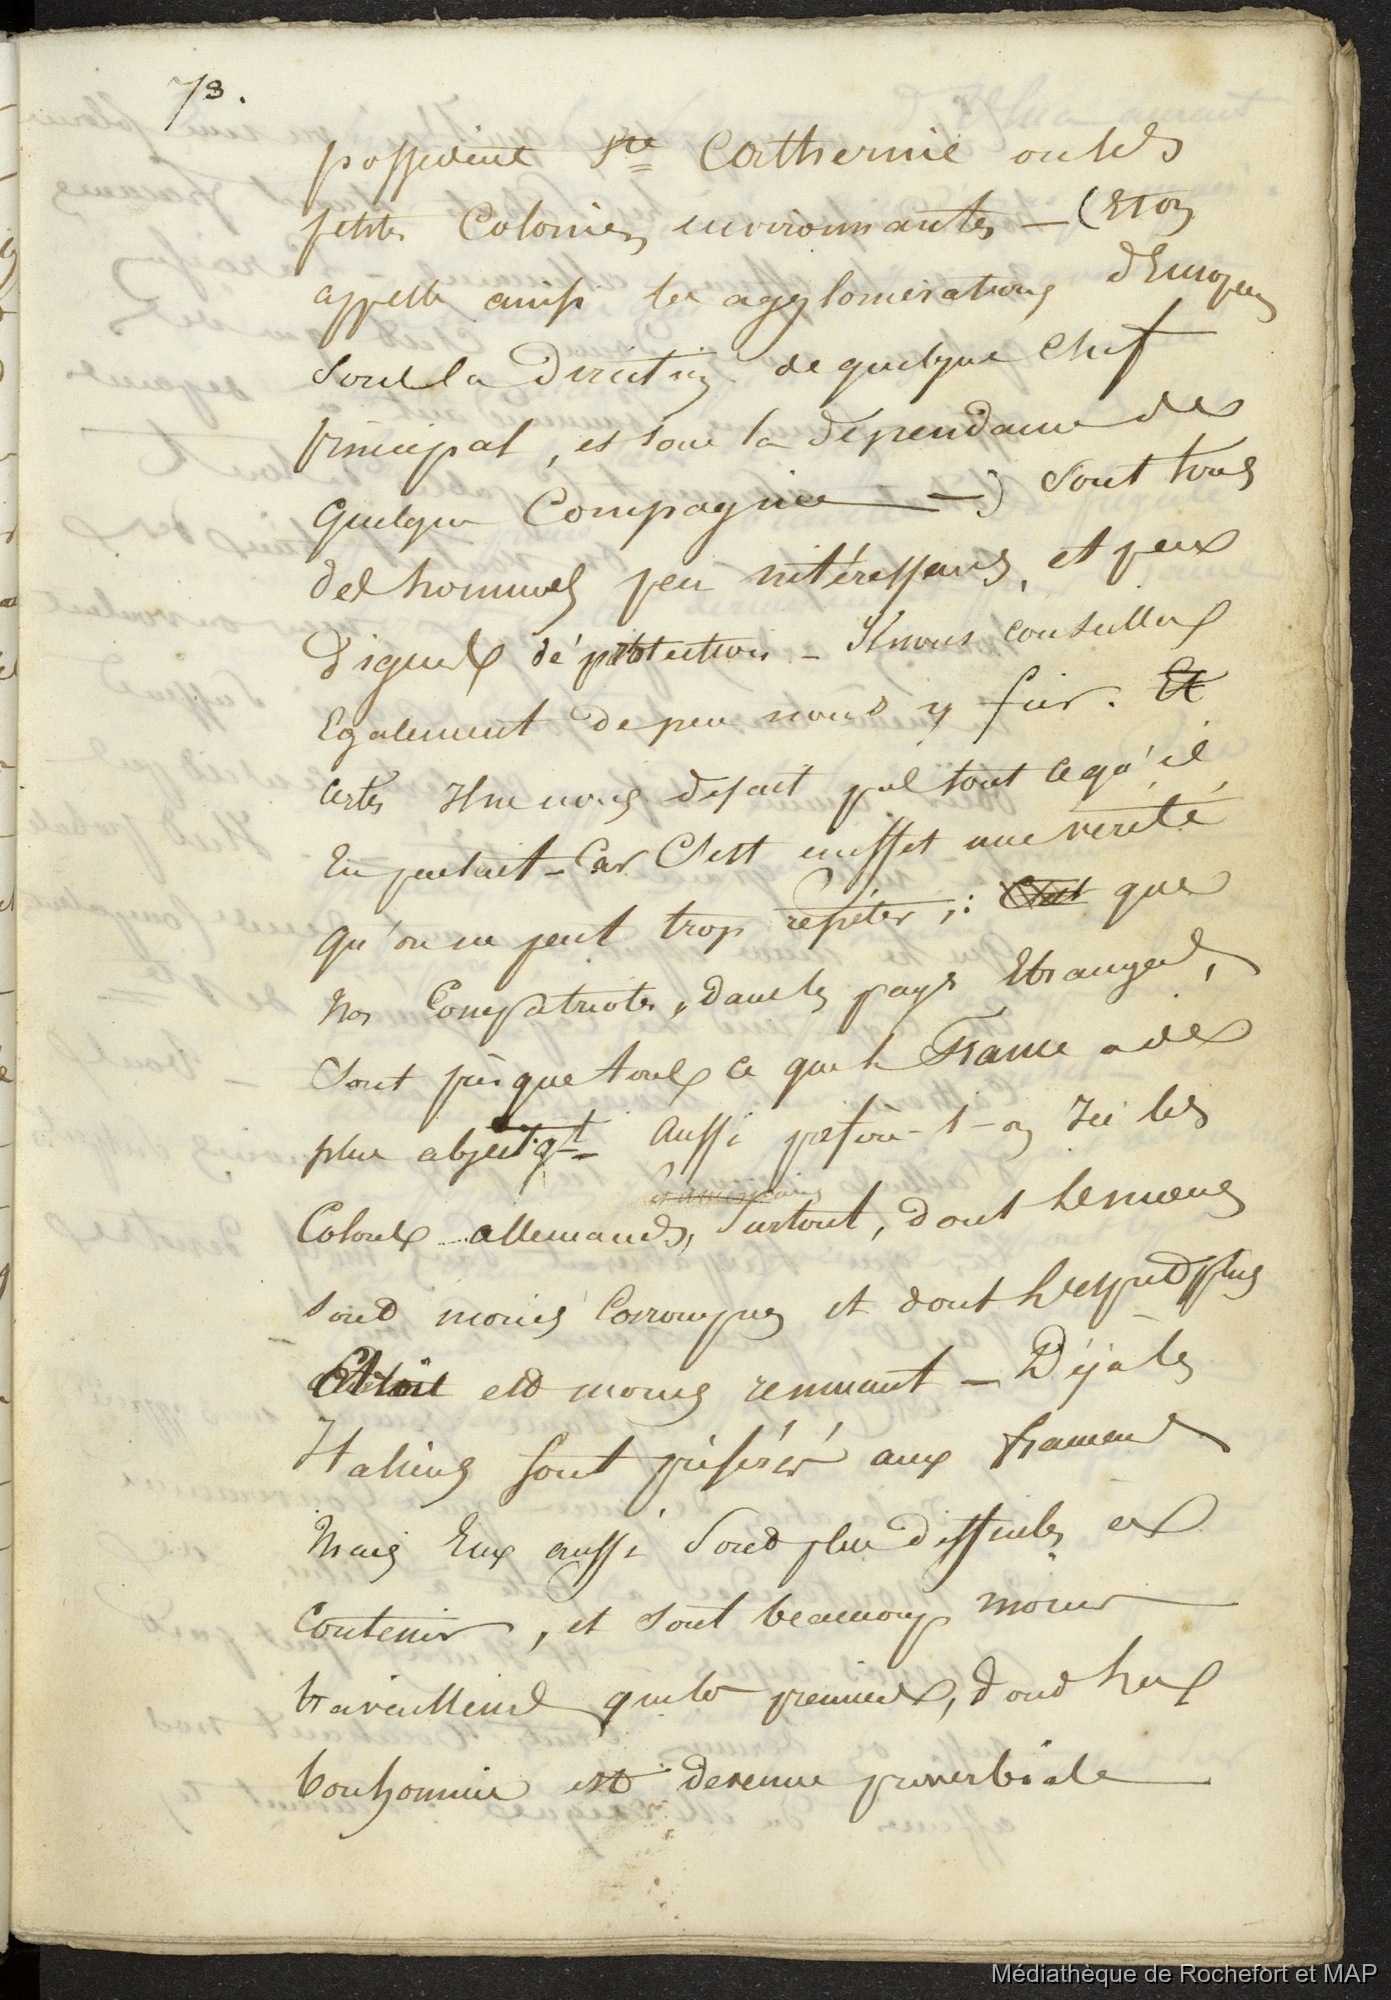 73.
possèdent Ste Catherine ou les
petites Colonies environnantes — (Et on
appelle ainsi les agglomérations d'Européens
sous la Direction de quelque Chef
principal, et sous la dépendance de
quelque Compagnie —) sont tous
des hommes peu intéressans, et peu
dignes de protection — Il nous conseille
Egalement de peu nous y fier. Et
certes Il ne nous disait pas tout ce qu'il
En pensait — Car C'est en effet une vérité
qu'on ne peut trop répéter ;: C'est que
Nos Compatriotes, dans les pays Etrangers,
sont presque tous ce que la France a de
plus abject. Aussi préfère-t-on Ici les
Colons allemands, surtout, dont les mœurs
sont moins corrompues et dont l'esprit plus
est moins remuant — Déjà les
Italiens sont préférés aux français
Mais Eux aussi sont plus difficiles à
contenir, et sont beaucoup moins
travailleurs que les premiers, dont la
bonhommie est devenue proverbiale
Médiathèque de Rochefort et MAP